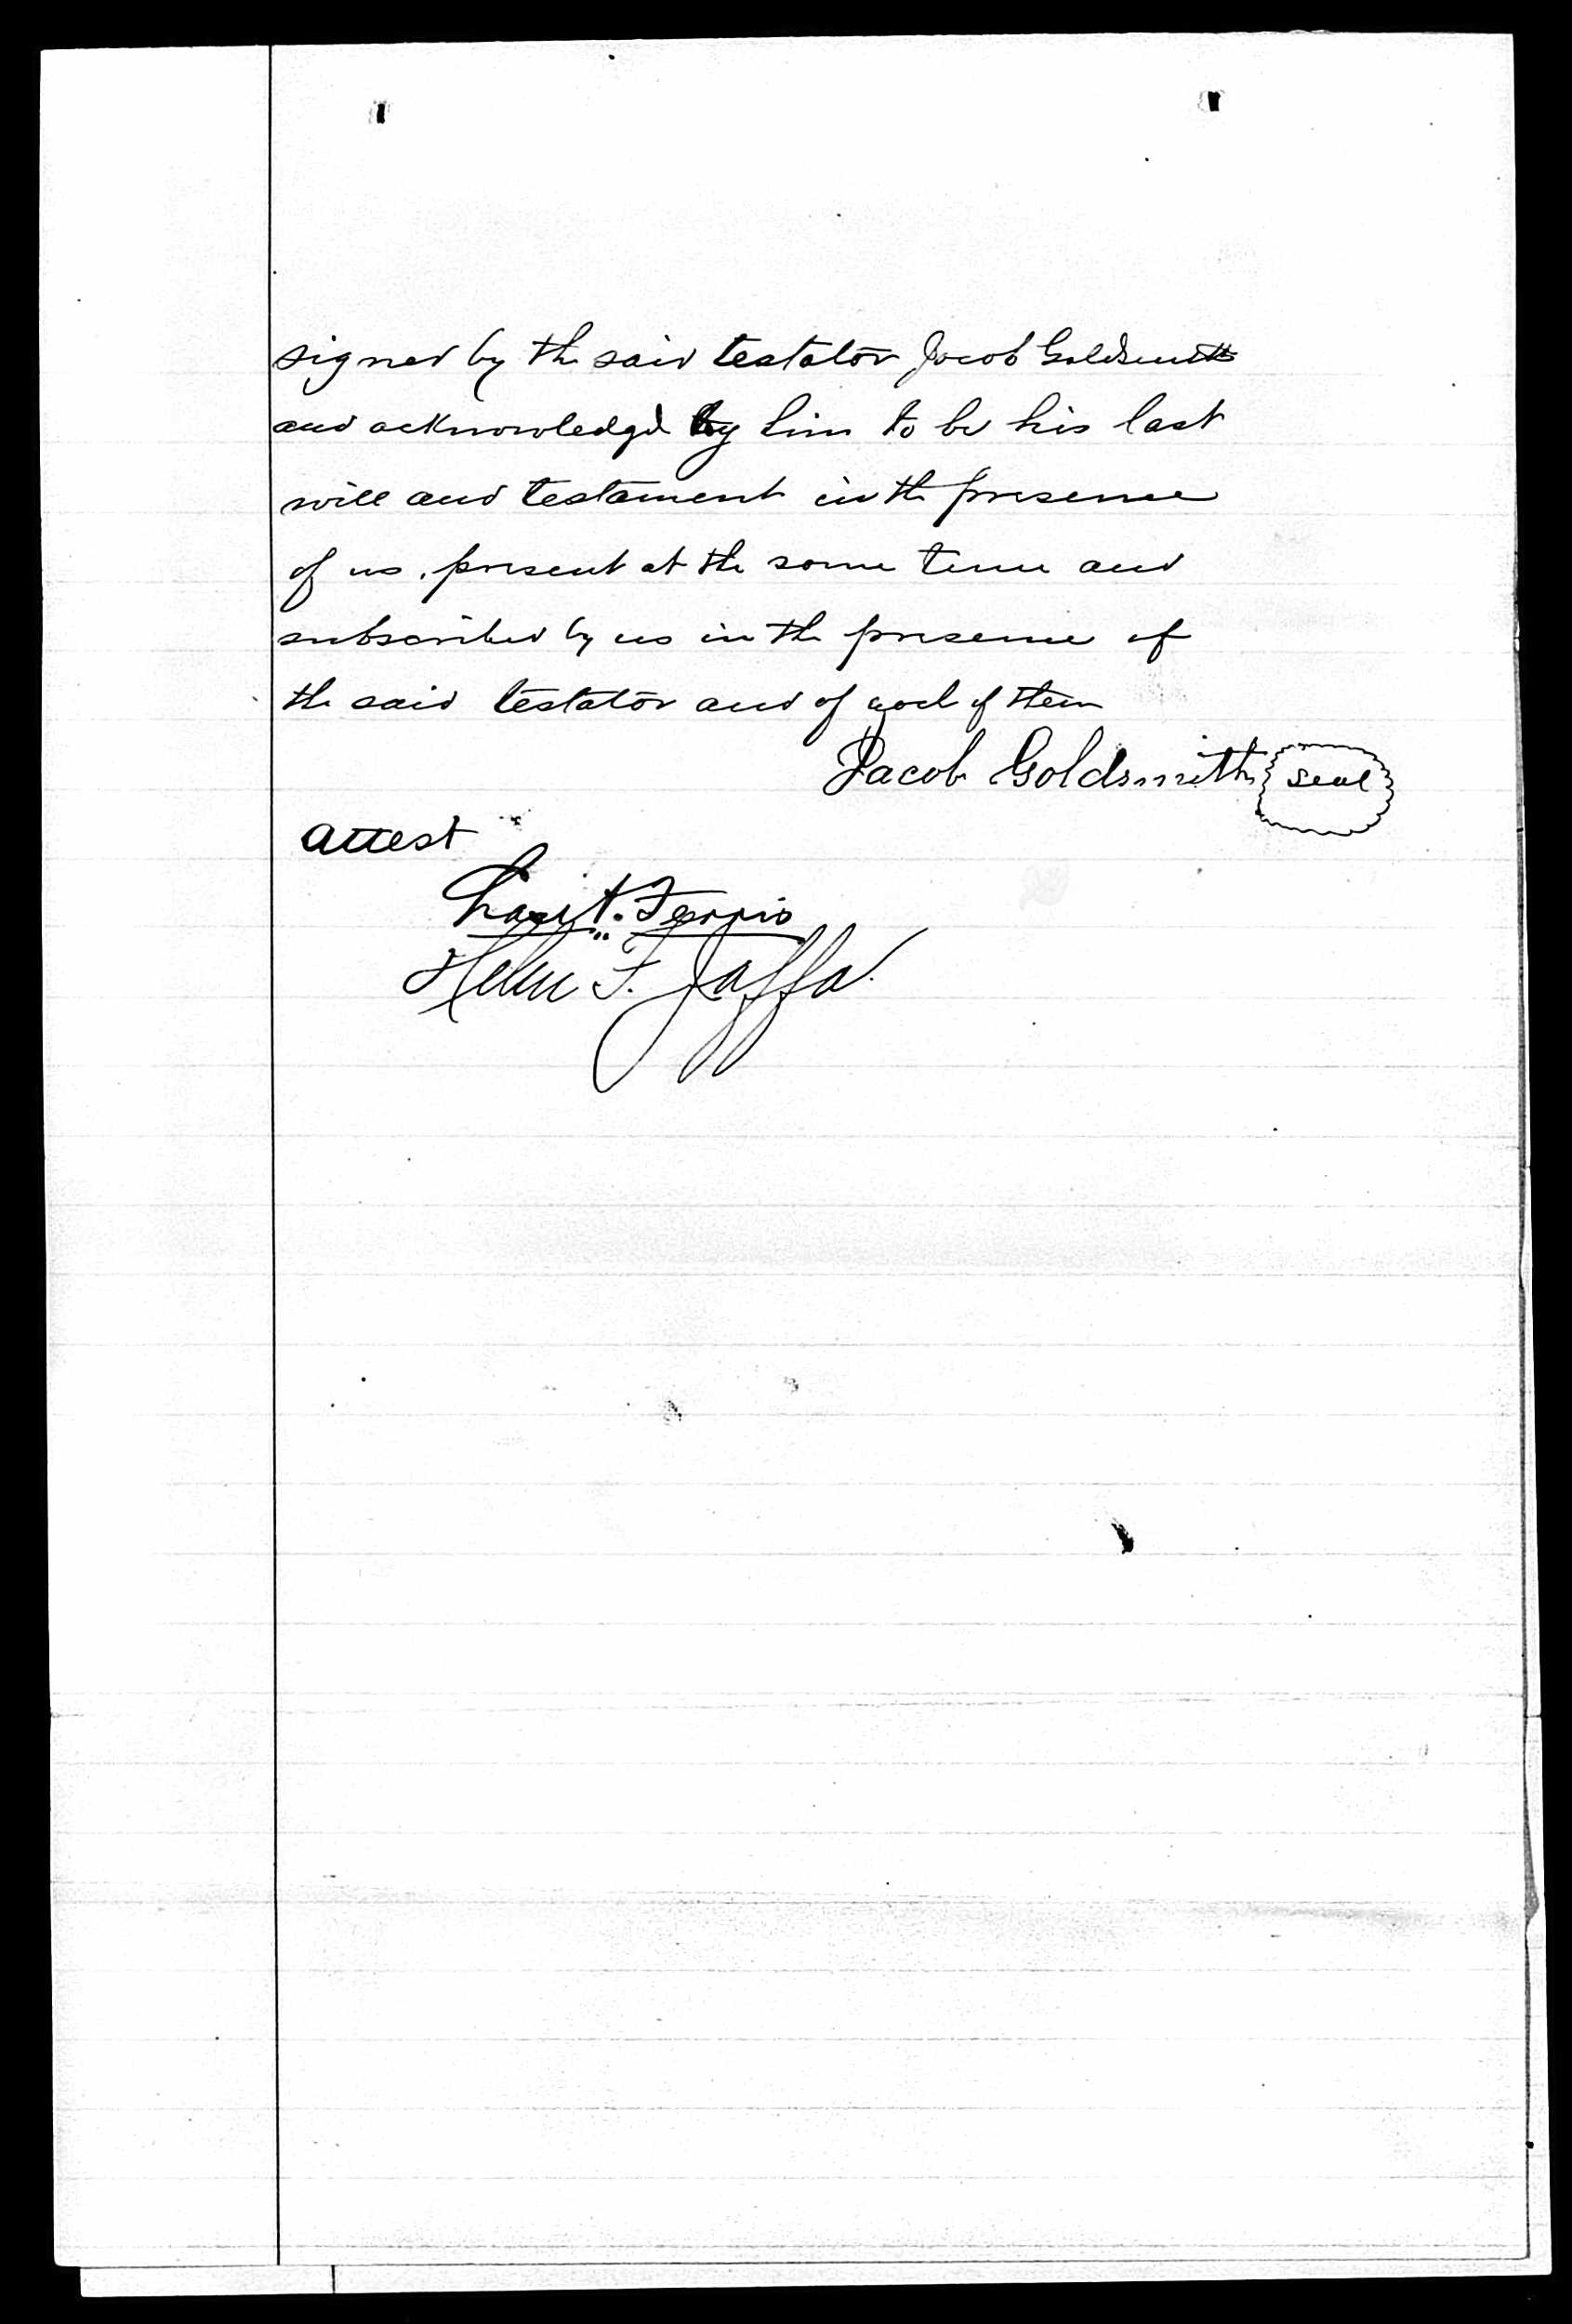 signed by the said testator Jacob Goldsmith
and acknowledgd by him to be his last
will and testament in the presence
of us, present at the same time and
subscribed by us in the presence of
the said testator and of each of them
Jacob Goldsmith seal
attest
Ferris
Helen F. Jaffa.